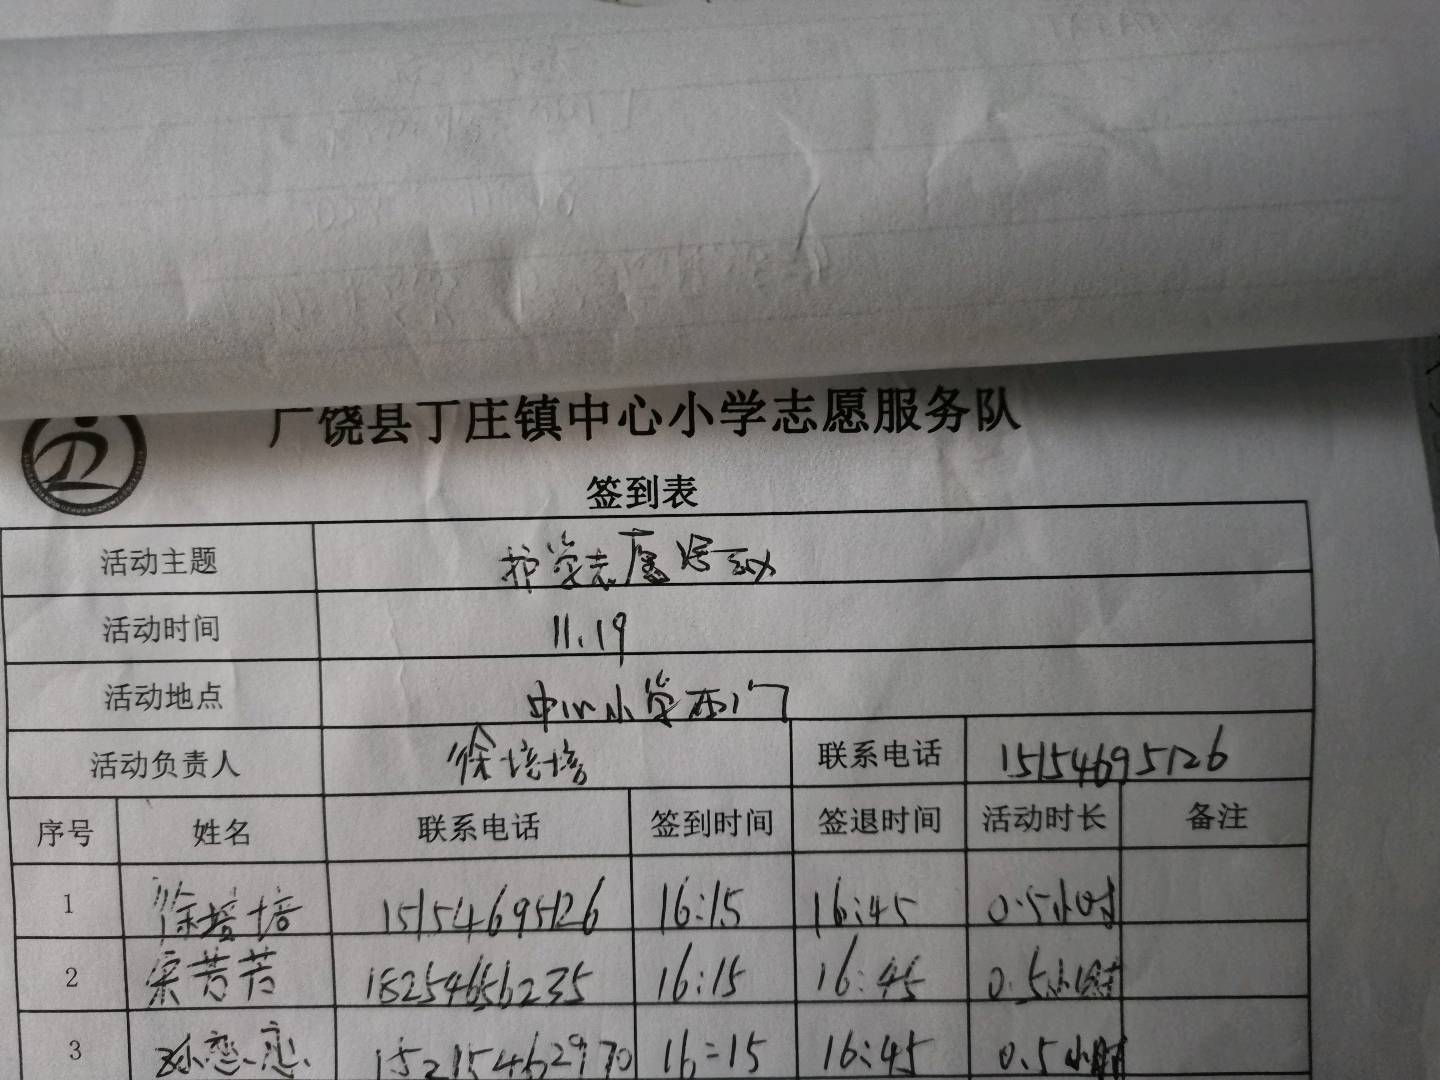 广饶县丁庄镇中心小学志愿服务队
签到表
活动主题 护学志愿活动
活动时间 11.19
活动地点 中心小学西门
活动负责人 徐培培 联系电话 15154695126
序号 姓名 联系电话 签到时间 签退时间 活动时长 备注
1 徐培培 15154695126 16:15 16:45 0.5小时
2 宋芳芳 18254656235 16:15 16:45 0.5小时
3 孙恋恋 15215462970 16:15 16:45 0.5小时